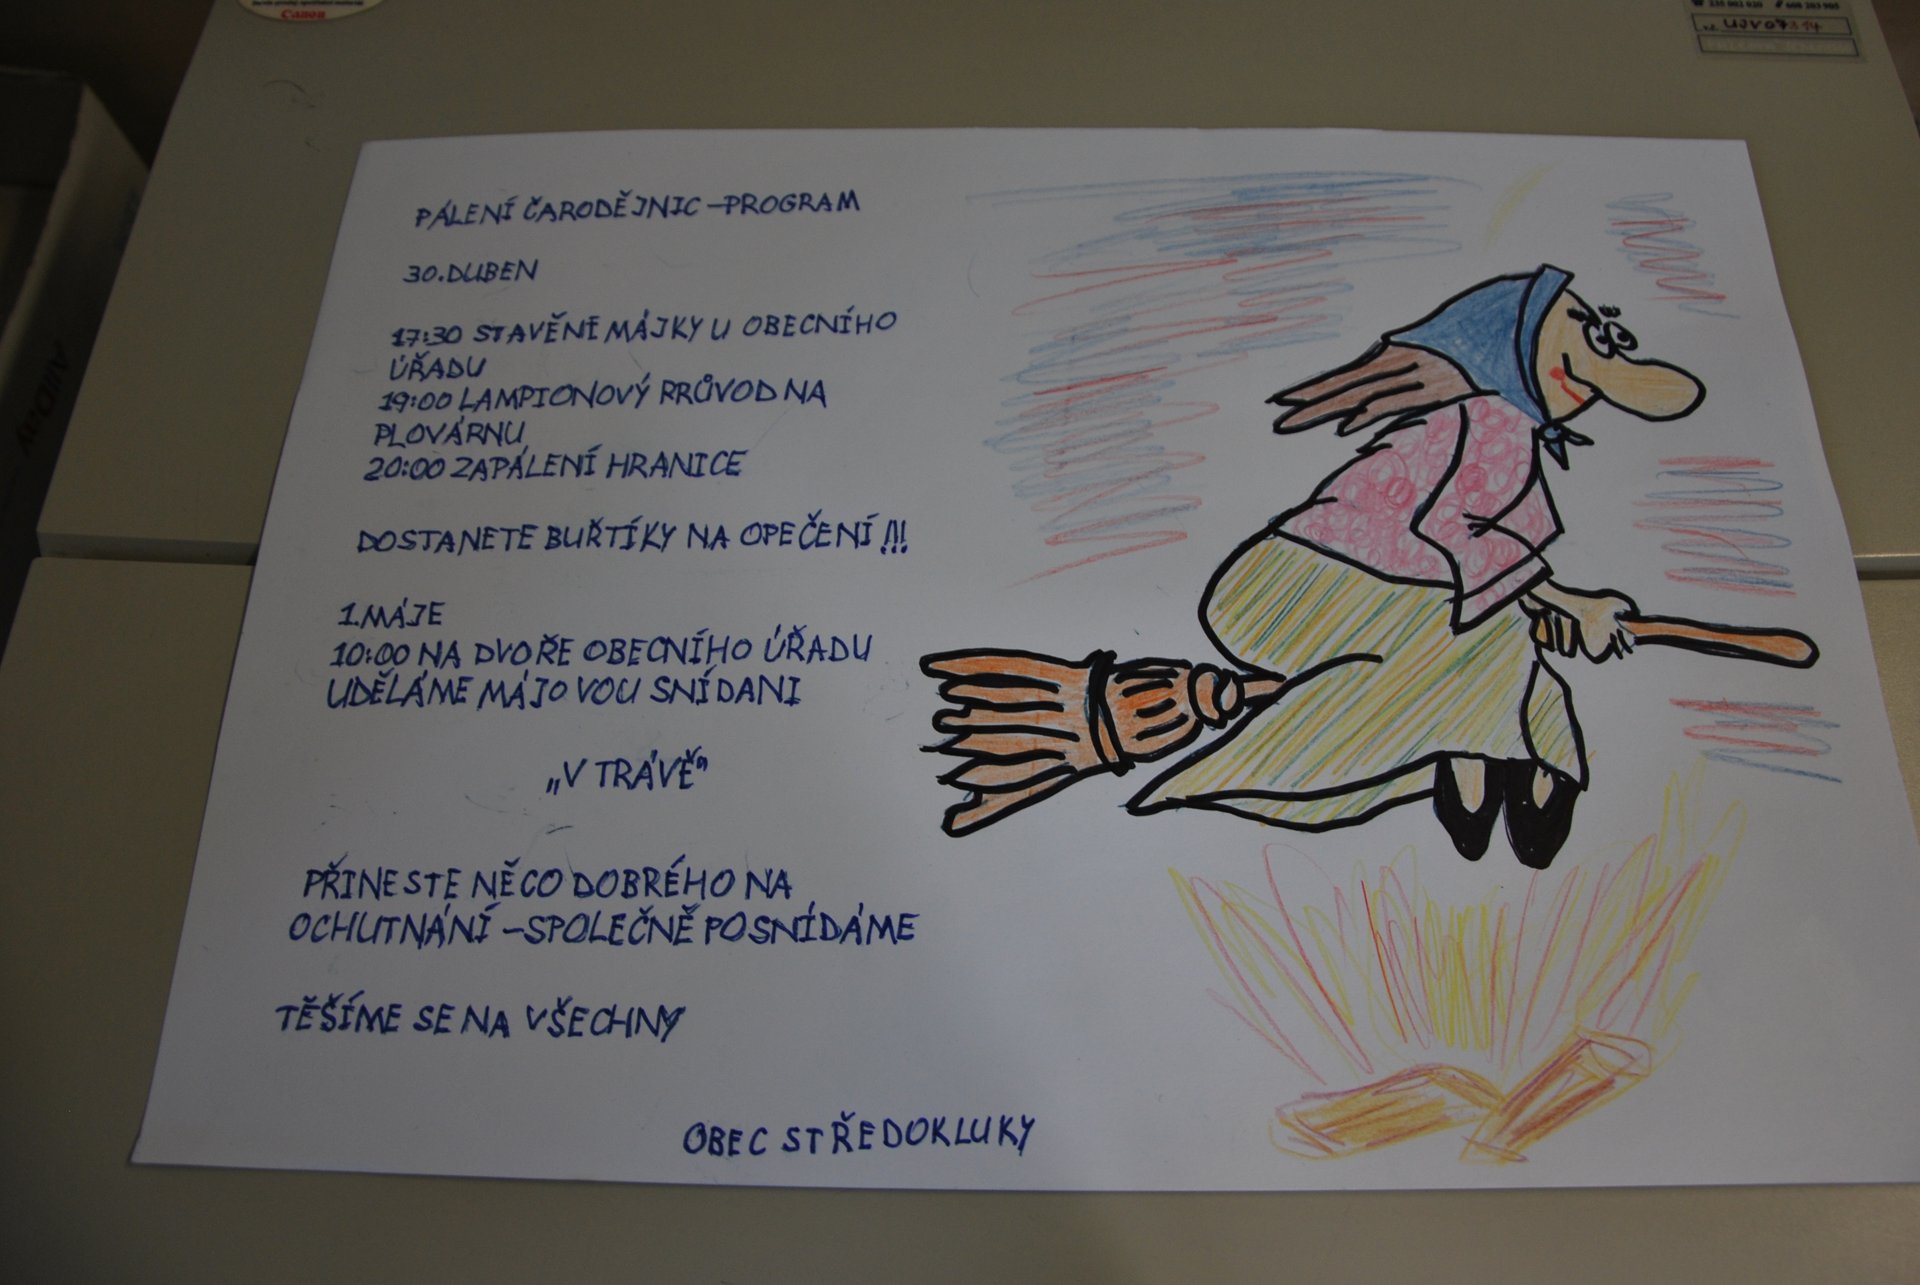 Canon
235 002 020 608 203 905
PÁLENÍ ČARODĚJNIC – PROGRAM
30. DUBEN
17:30 STAVĚNÍ MÁJKY U OBECNÍHO
ÚŘADU
19:00 LAMPIONOVÝ PRŮVOD NA
PLOVÁRNU
20:00 ZAPÁLENÍ HRANICE
DOSTANETE BUŘTÍKY NA OPEČENÍ!!!
1. MÁJE
10:00 NA DVOŘE OBECNÍHO ÚŘADU
UDĚLÁME MÁJOVOU SNÍDANI
„V TRÁVĚ“
PŘINESTE NĚCO DOBRÉHO NA
OCHUTNÁNÍ – SPOLEČNĚ POSNÍDÁME
TĚŠÍME SE NA VŠECHNY
OBEC STŘEDOKLUKY